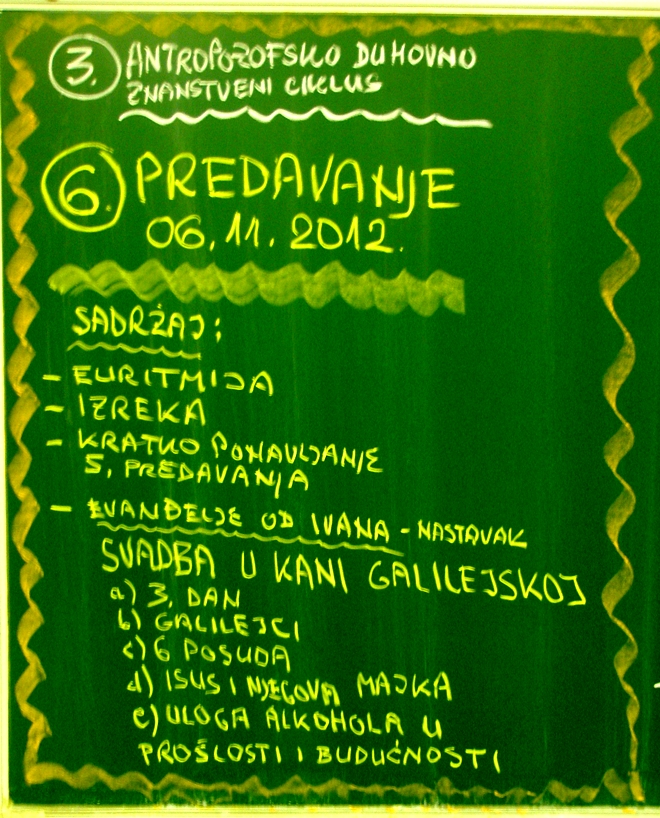 3. ANTROPOZOFSKO DUHOVNO
ZNANSTVENI CIKLUS
6. PREDAVANJE
06.11.2012.
SADRŽAJ:
- EURITMIJA
- IZREKA
- KRATKO PONAVLJANJE
5. PREDAVANJA
- EVANĐELJE OD IVANA - NASTAVAK
SVADBA U KANI GALILEJSKOJ
a) 3. DAN
b) GALILEJCI
c) 6 POSUDA
d) ISUS I NJEGOVA MAJKA
e) ULOGA ALKOHOLA U
PROŠLOSTI I BUDUĆNOSTI